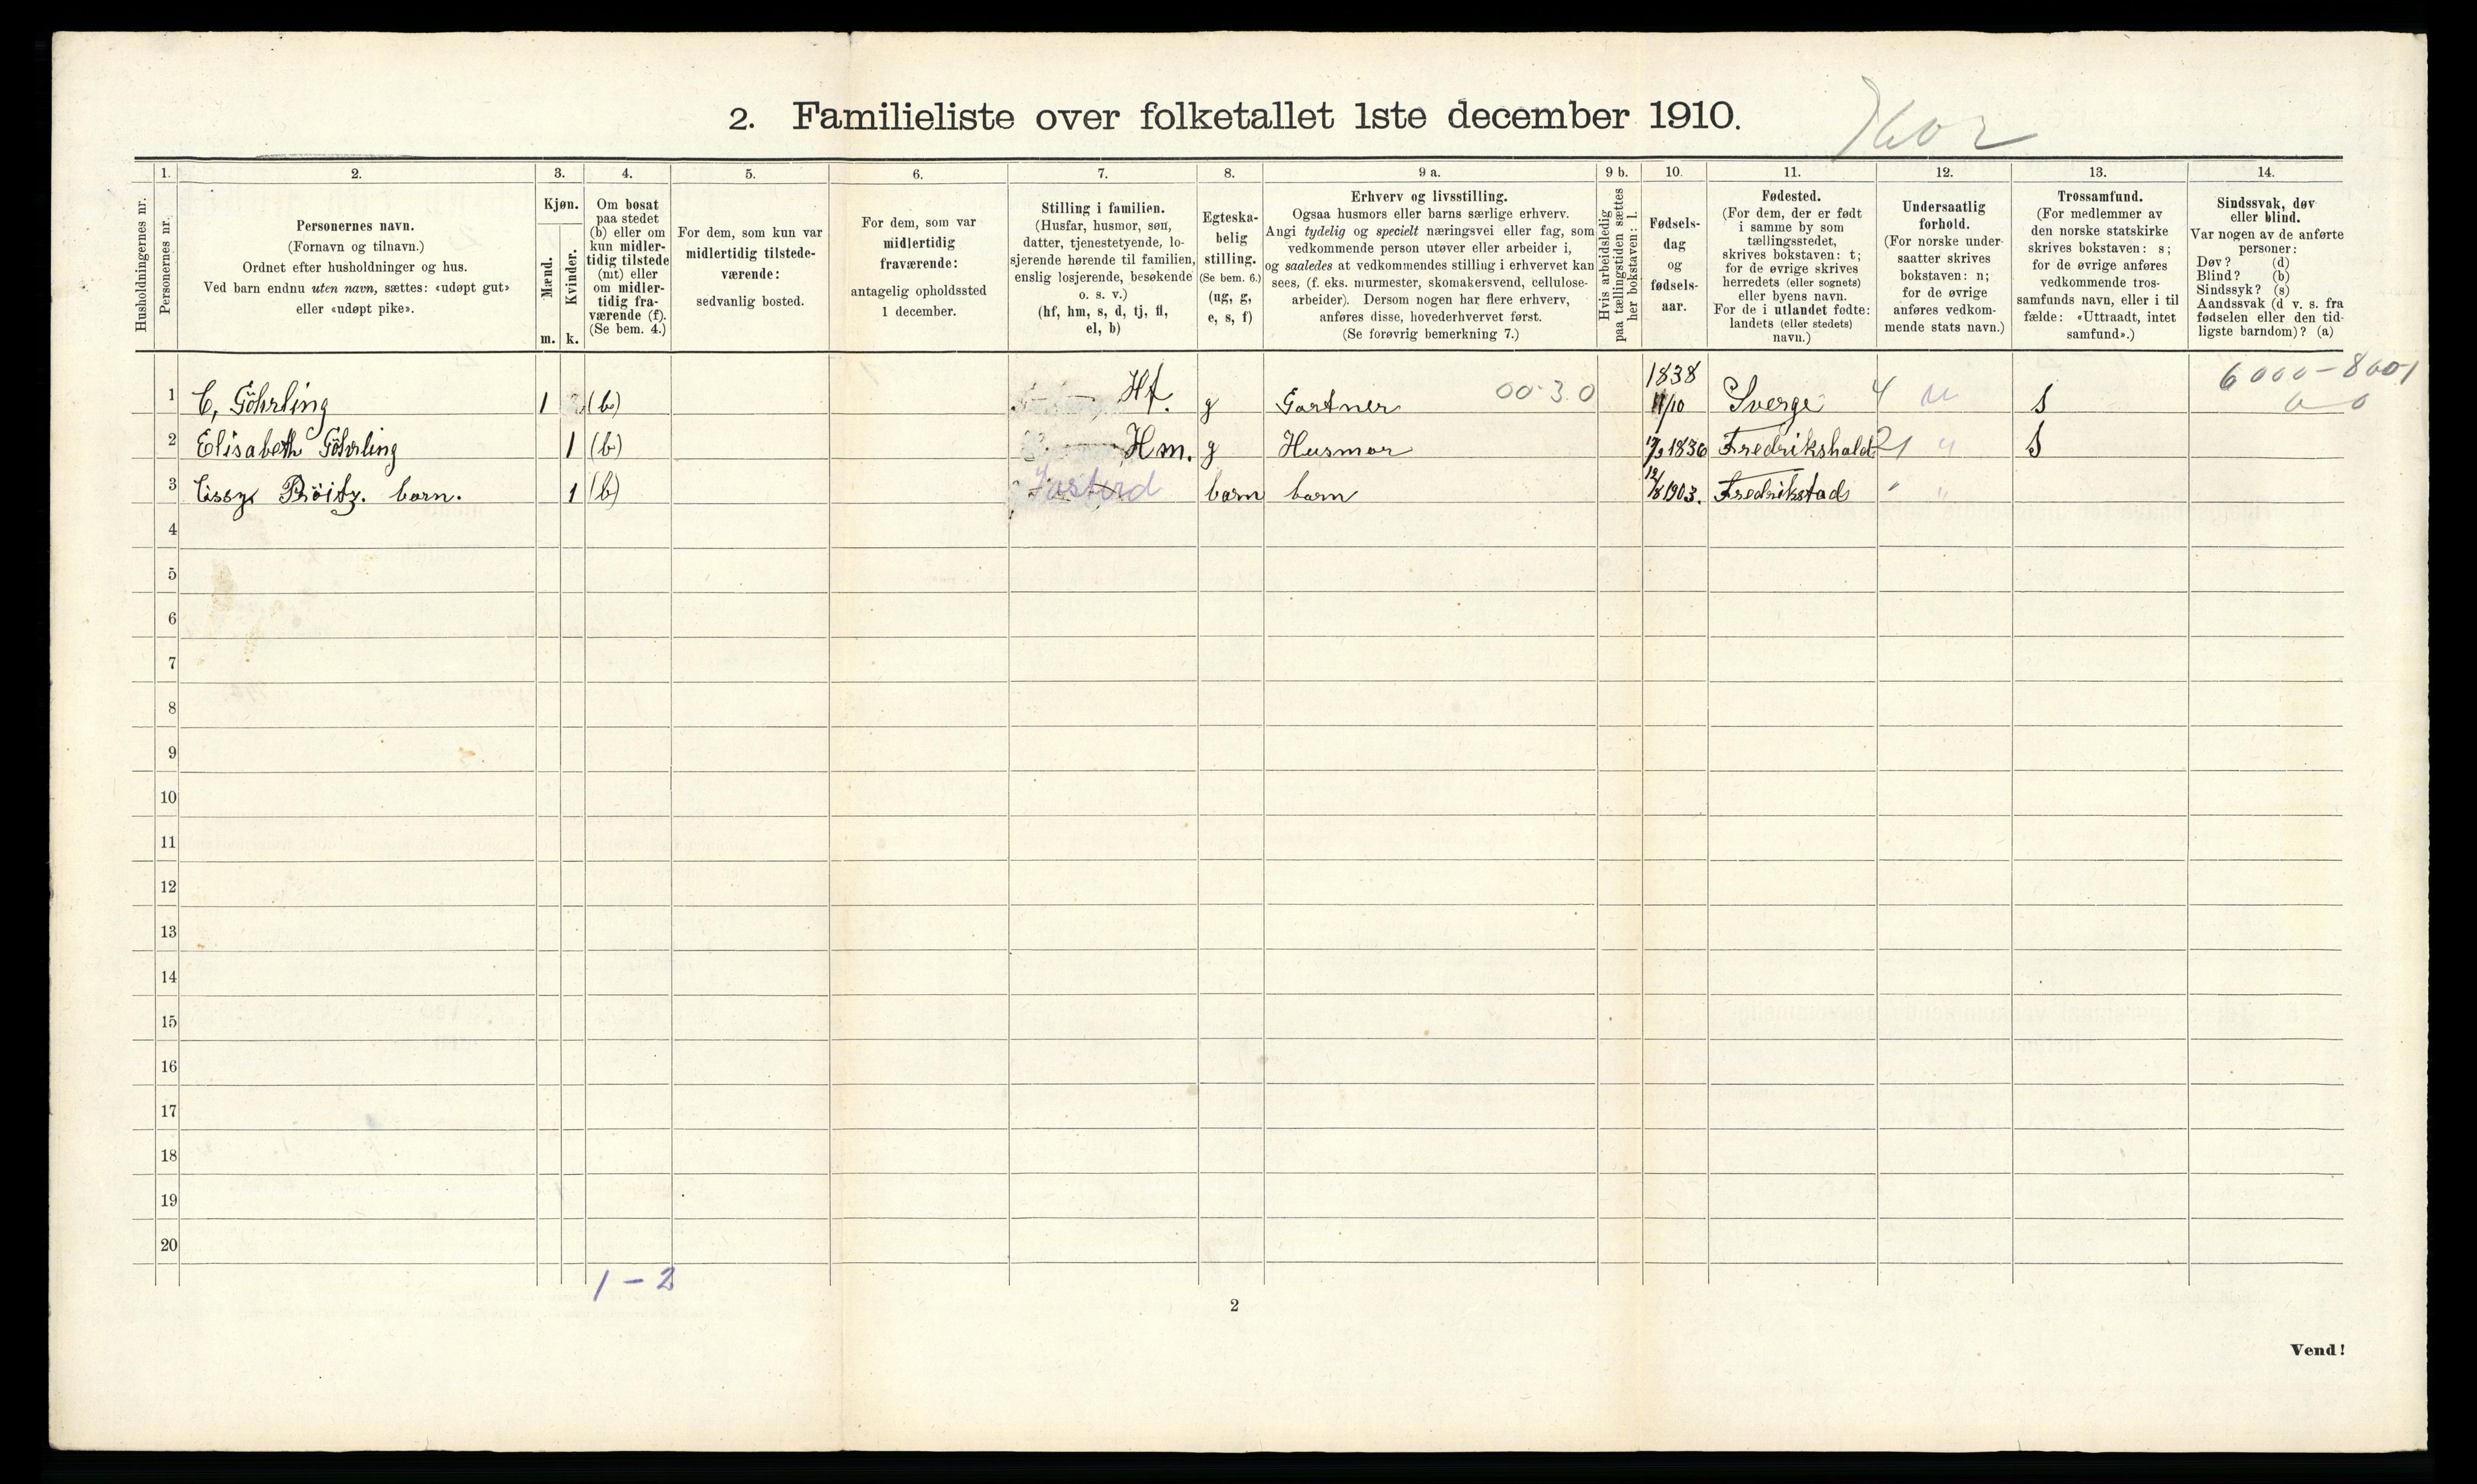 2. Familieliste over folketallet 1ste december 1910.
Husholdningernes nr.
1.
Personernes nr.
2.
Personernes navn.
(Fornavn og tilnavn.)
Ordnet efter husholdninger og hus.
Ved barn endnu uten navn, sættes: «udøpt gut»
eller «udøpt pike».
3.
Kjøn.
Mænd.
Kvinder.
m. k.
4.
Om bosat
paa stedet
(b) eller om
kun midler-
tidig tilstede
(mt) eller
om midler-
tidig fra-
værende (f).
(Se bem. 4.)
5.
For dem, som kun var
midlertidig tilstede-
værende:
sedvanlig bosted.
6.
For dem, som var
midlertidig
fraværende:
antagelig opholdssted
1 december.
7.
Stilling i familien.
(Husfar, husmor, søn,
datter, tjenestetyende, lo-
sjerende hørende til familien,
enslig losjerende, besøkende
o. s. v.)
(hf, hm, s, d, tj, fl,
el, b)
8.
Egteska-
belig
stilling.
(Se bem. 6.)
(ug, g,
e, s, f)
9 a.
Erhverv og livsstilling.
Ogsaa husmors eller barns særlige erhverv.
Angi tydelig og specielt næringsvei eller fag, som
vedkommende person utøver eller arbeider i,
og saaledes at vedkommendes stilling i erhvervet kan
sees, (f. eks. murmester, skomakersvend, cellulose-
arbeider). Dersom nogen har flere erhverv,
anføres disse, hovederhvervet først.
(Se forøvrig bemerkning 7.)
9 b.
Hvis arbeidsledig
paa tællingstiden sættes
her bokstaven: l.
10.
Fødsels-
dag
og
fødsels-
aar.
11.
Fødested.
(For dem, der er født
i samme by som
tællingsstedet,
skrives bokstaven: t;
for de øvrige skrives
herredets (eller sognets)
eller byens navn.
For de i utlandet fødte:
landets (eller stedets)
navn.)
12.
Undersaatlig
forhold.
(For norske under-
saatter skrives
bokstaven: n;
for de øvrige
anføres vedkom-
mende stats navn.)
13.
Trossamfund.
(For medlemmer av
den norske statskirke
skrives bokstaven: s;
for de øvrige anføres
vedkommende tros-
samfunds navn, eller i til
fælde: «Uttraadt, intet
samfund».)
14.
Sindssvak, døv
eller blind.
Var nogen av de anførte
personer:
Døv? (d)
Blind? (b)
Sindssyk? (s)
Aandssvak (d v. s. fra
fødselen eller den tid-
ligste barndom)? (a)
6000-8001
1 C, Göhrling 1 (b) Hf. g Gartner 00-30 1838 11/10 Sverge 4 n S 0 0
2 Elisabeth Göhrling 1 (b) Hm. g Husmor 1836 Fredrikshald 21 " S
3 1 (b) barn barn 12/8 1903. Fredrikstad "
4
5
6
7
8
9
10
11
12
13
14
15
16
17
18
19
20
1 - 2
2
Vend!